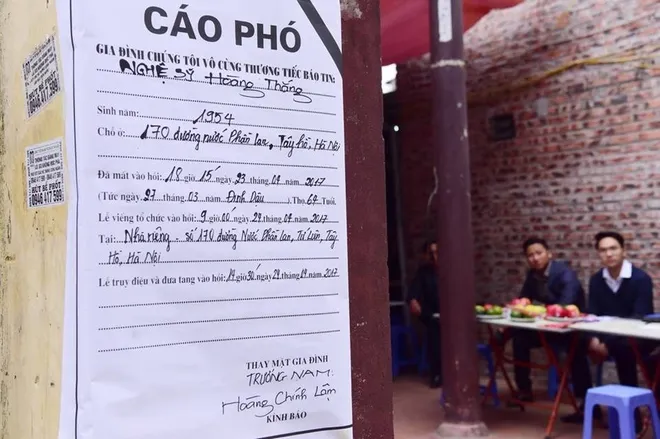 CÁO PHÓ
GIA ĐÌNH CHÚNG TÔI VÔ CÙNG THƯƠNG TIẾC BÁO TIN:
NGHỆ SỸ Hoàng Thắng
Sinh năm: 1954
Chỗ ở: 170 đường nước Phần lan, Tây hồ, Hà Nội
Đã mất vào hồi: 18 giờ 15 ngày 23 tháng 04 năm 2017
(Tức ngày 27 tháng 03 năm Đinh Dậu) Thọ 64 Tuổi.
Lễ viếng tổ chức vào hồi: 9 giờ 00 ngày 29 tháng 04 năm 2017
Tại: Nhà riêng - số 170 đường Nước Phần lan, Tứ Liên, Tây
Hồ, Hà Nội
Lễ truy điệu và đưa tang vào hồi: 14 giờ 30 ngày 29 tháng 04 năm 2017
THAY MẶT GIA ĐÌNH
TRƯỞNG NAM:
Hoàng Chính Lâm
KÍNH BÁO
HÚT BỂ PHỐT
0946 417 599